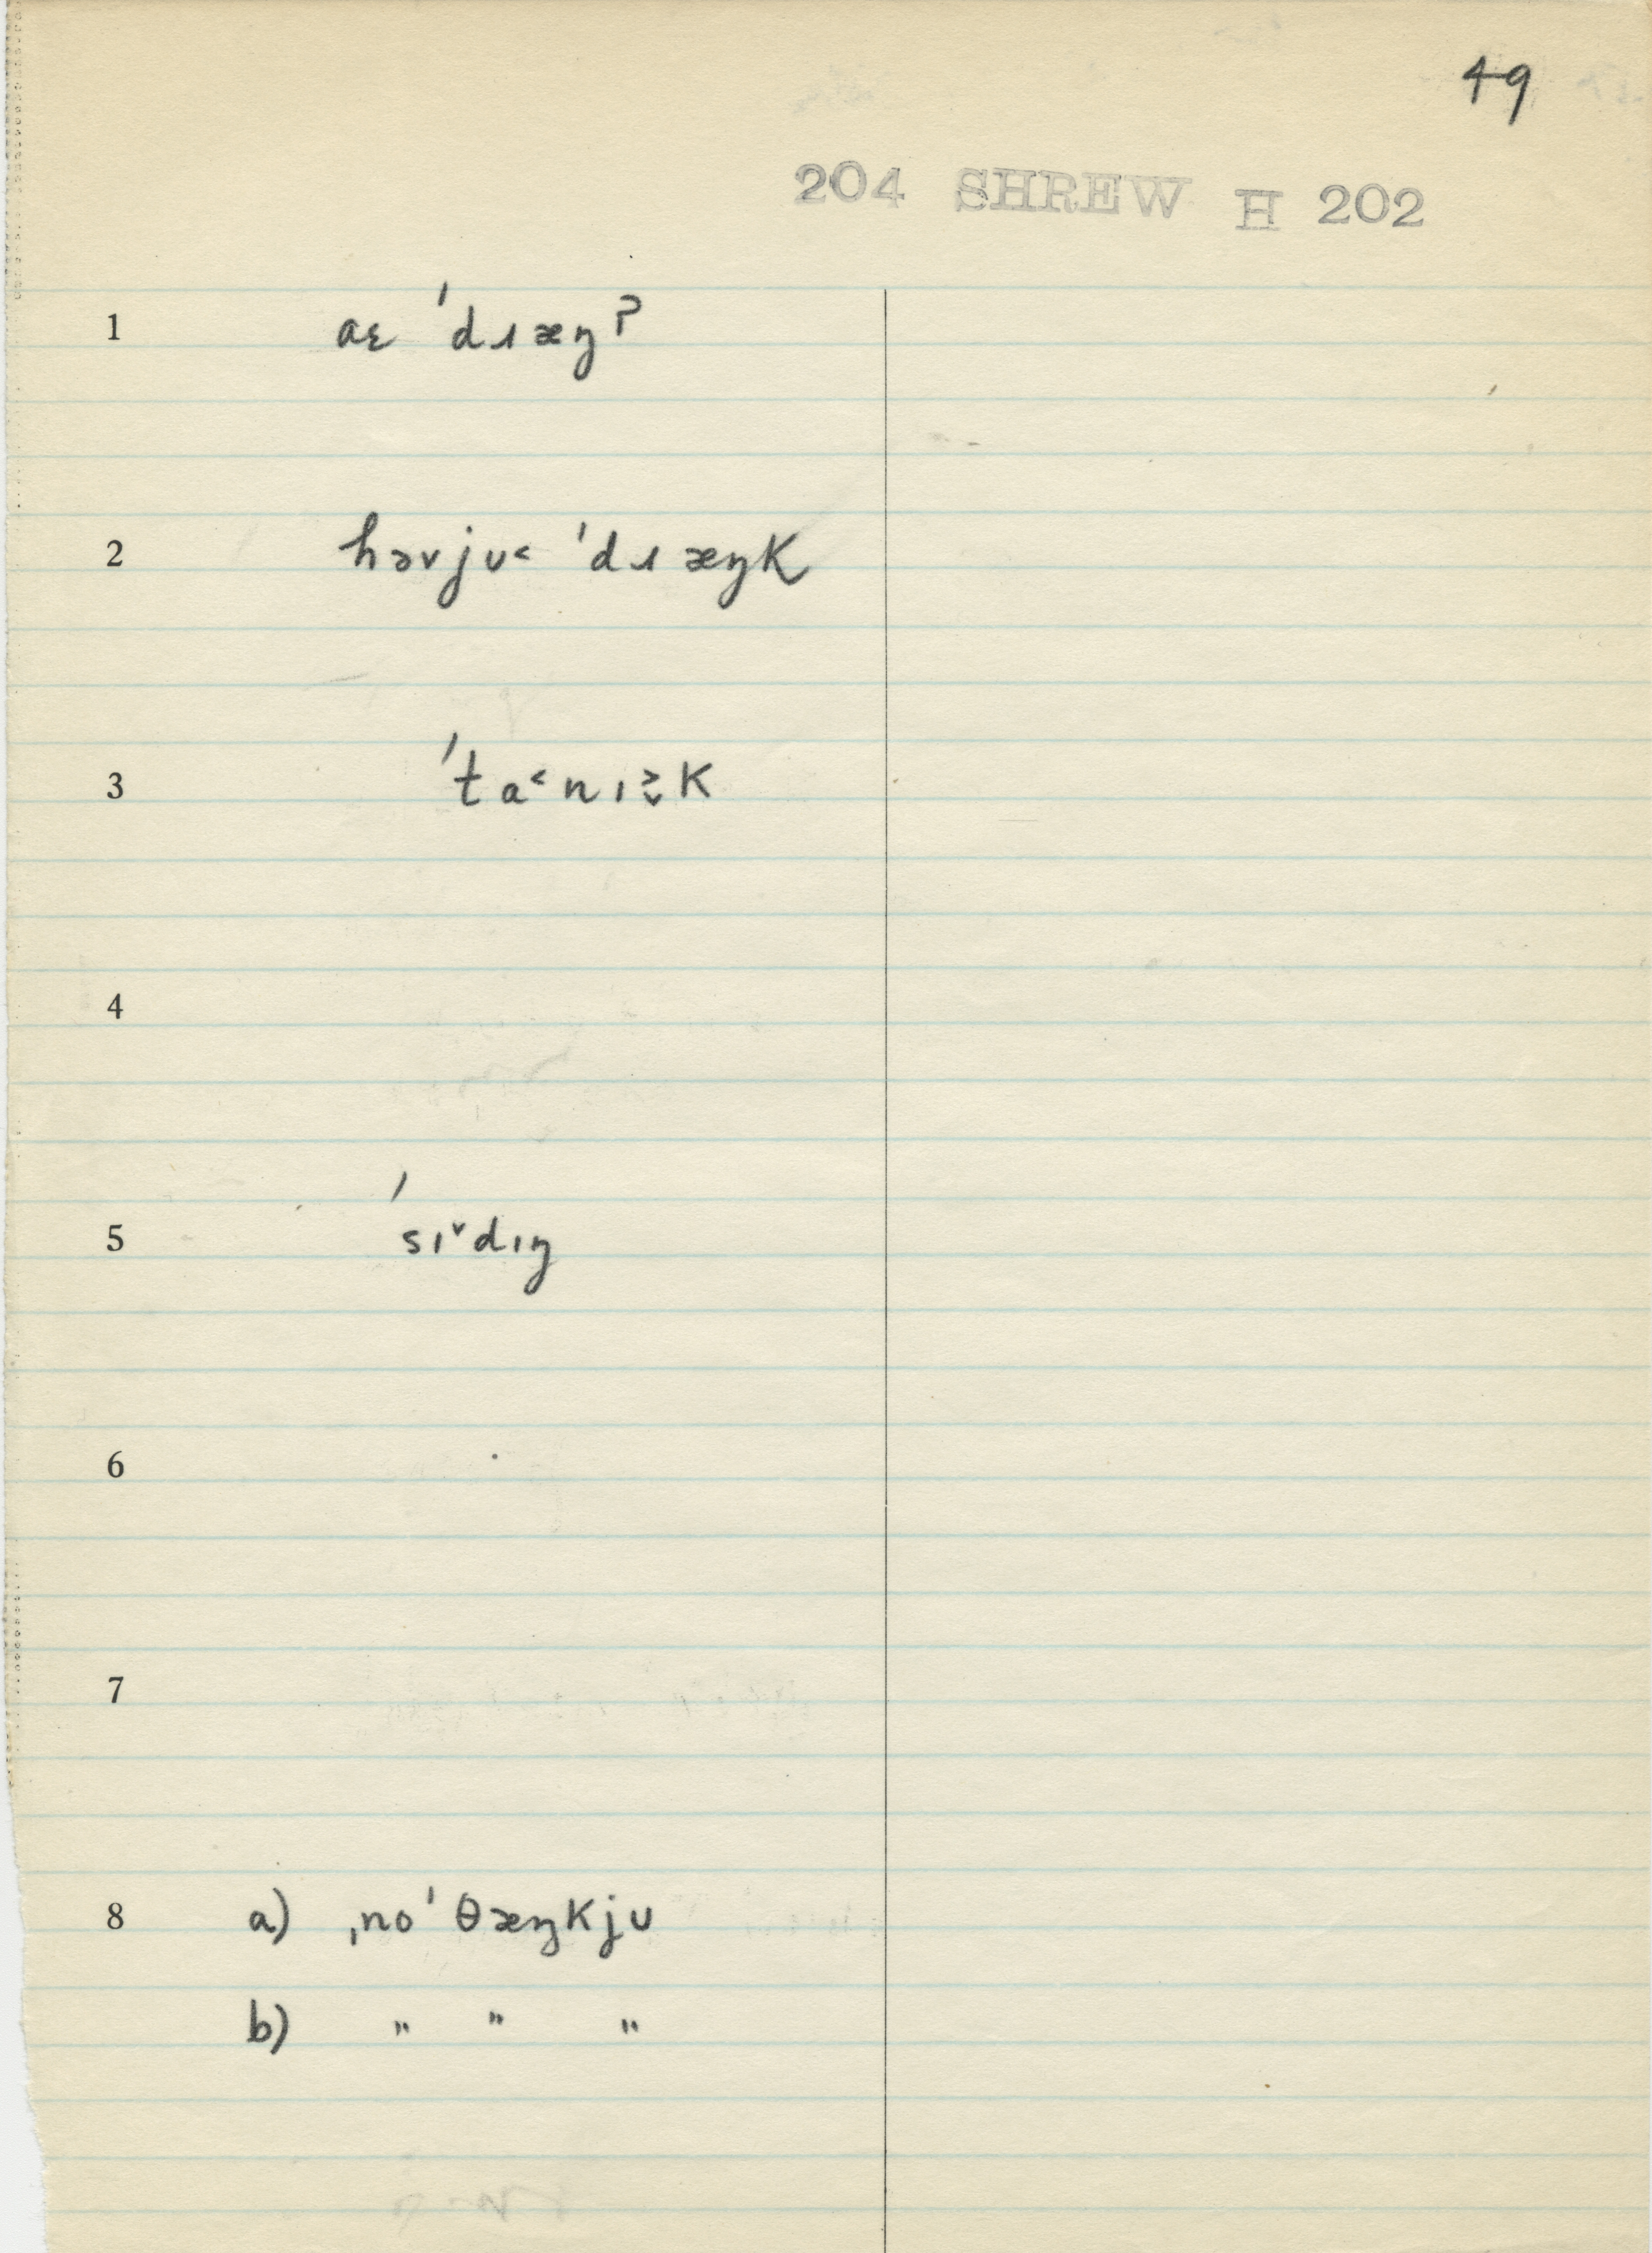 49
204 SHREW H 202
1 aɛ ˈdɹæŋʔ
2 həvjʊ˂ ˈdɹæŋk
3 ˈta˂nɪ˲̬k
4
5 ˈsɪ˅dɪŋ
6
7
8 a) ˌnoˈθæŋkjʊ
b) " " "